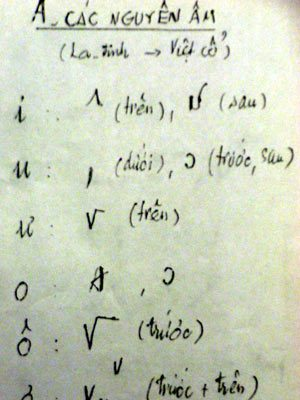 A_ CÁC NGUYÊN ÂM
(La_tinh → Việt cổ)
i : ʌ (trên), (sau)
u : , (dưới), ɔ (trước, sau)
ư : v (trên)
o : , ɔ
ô : √ (trước)
(trước + trên)